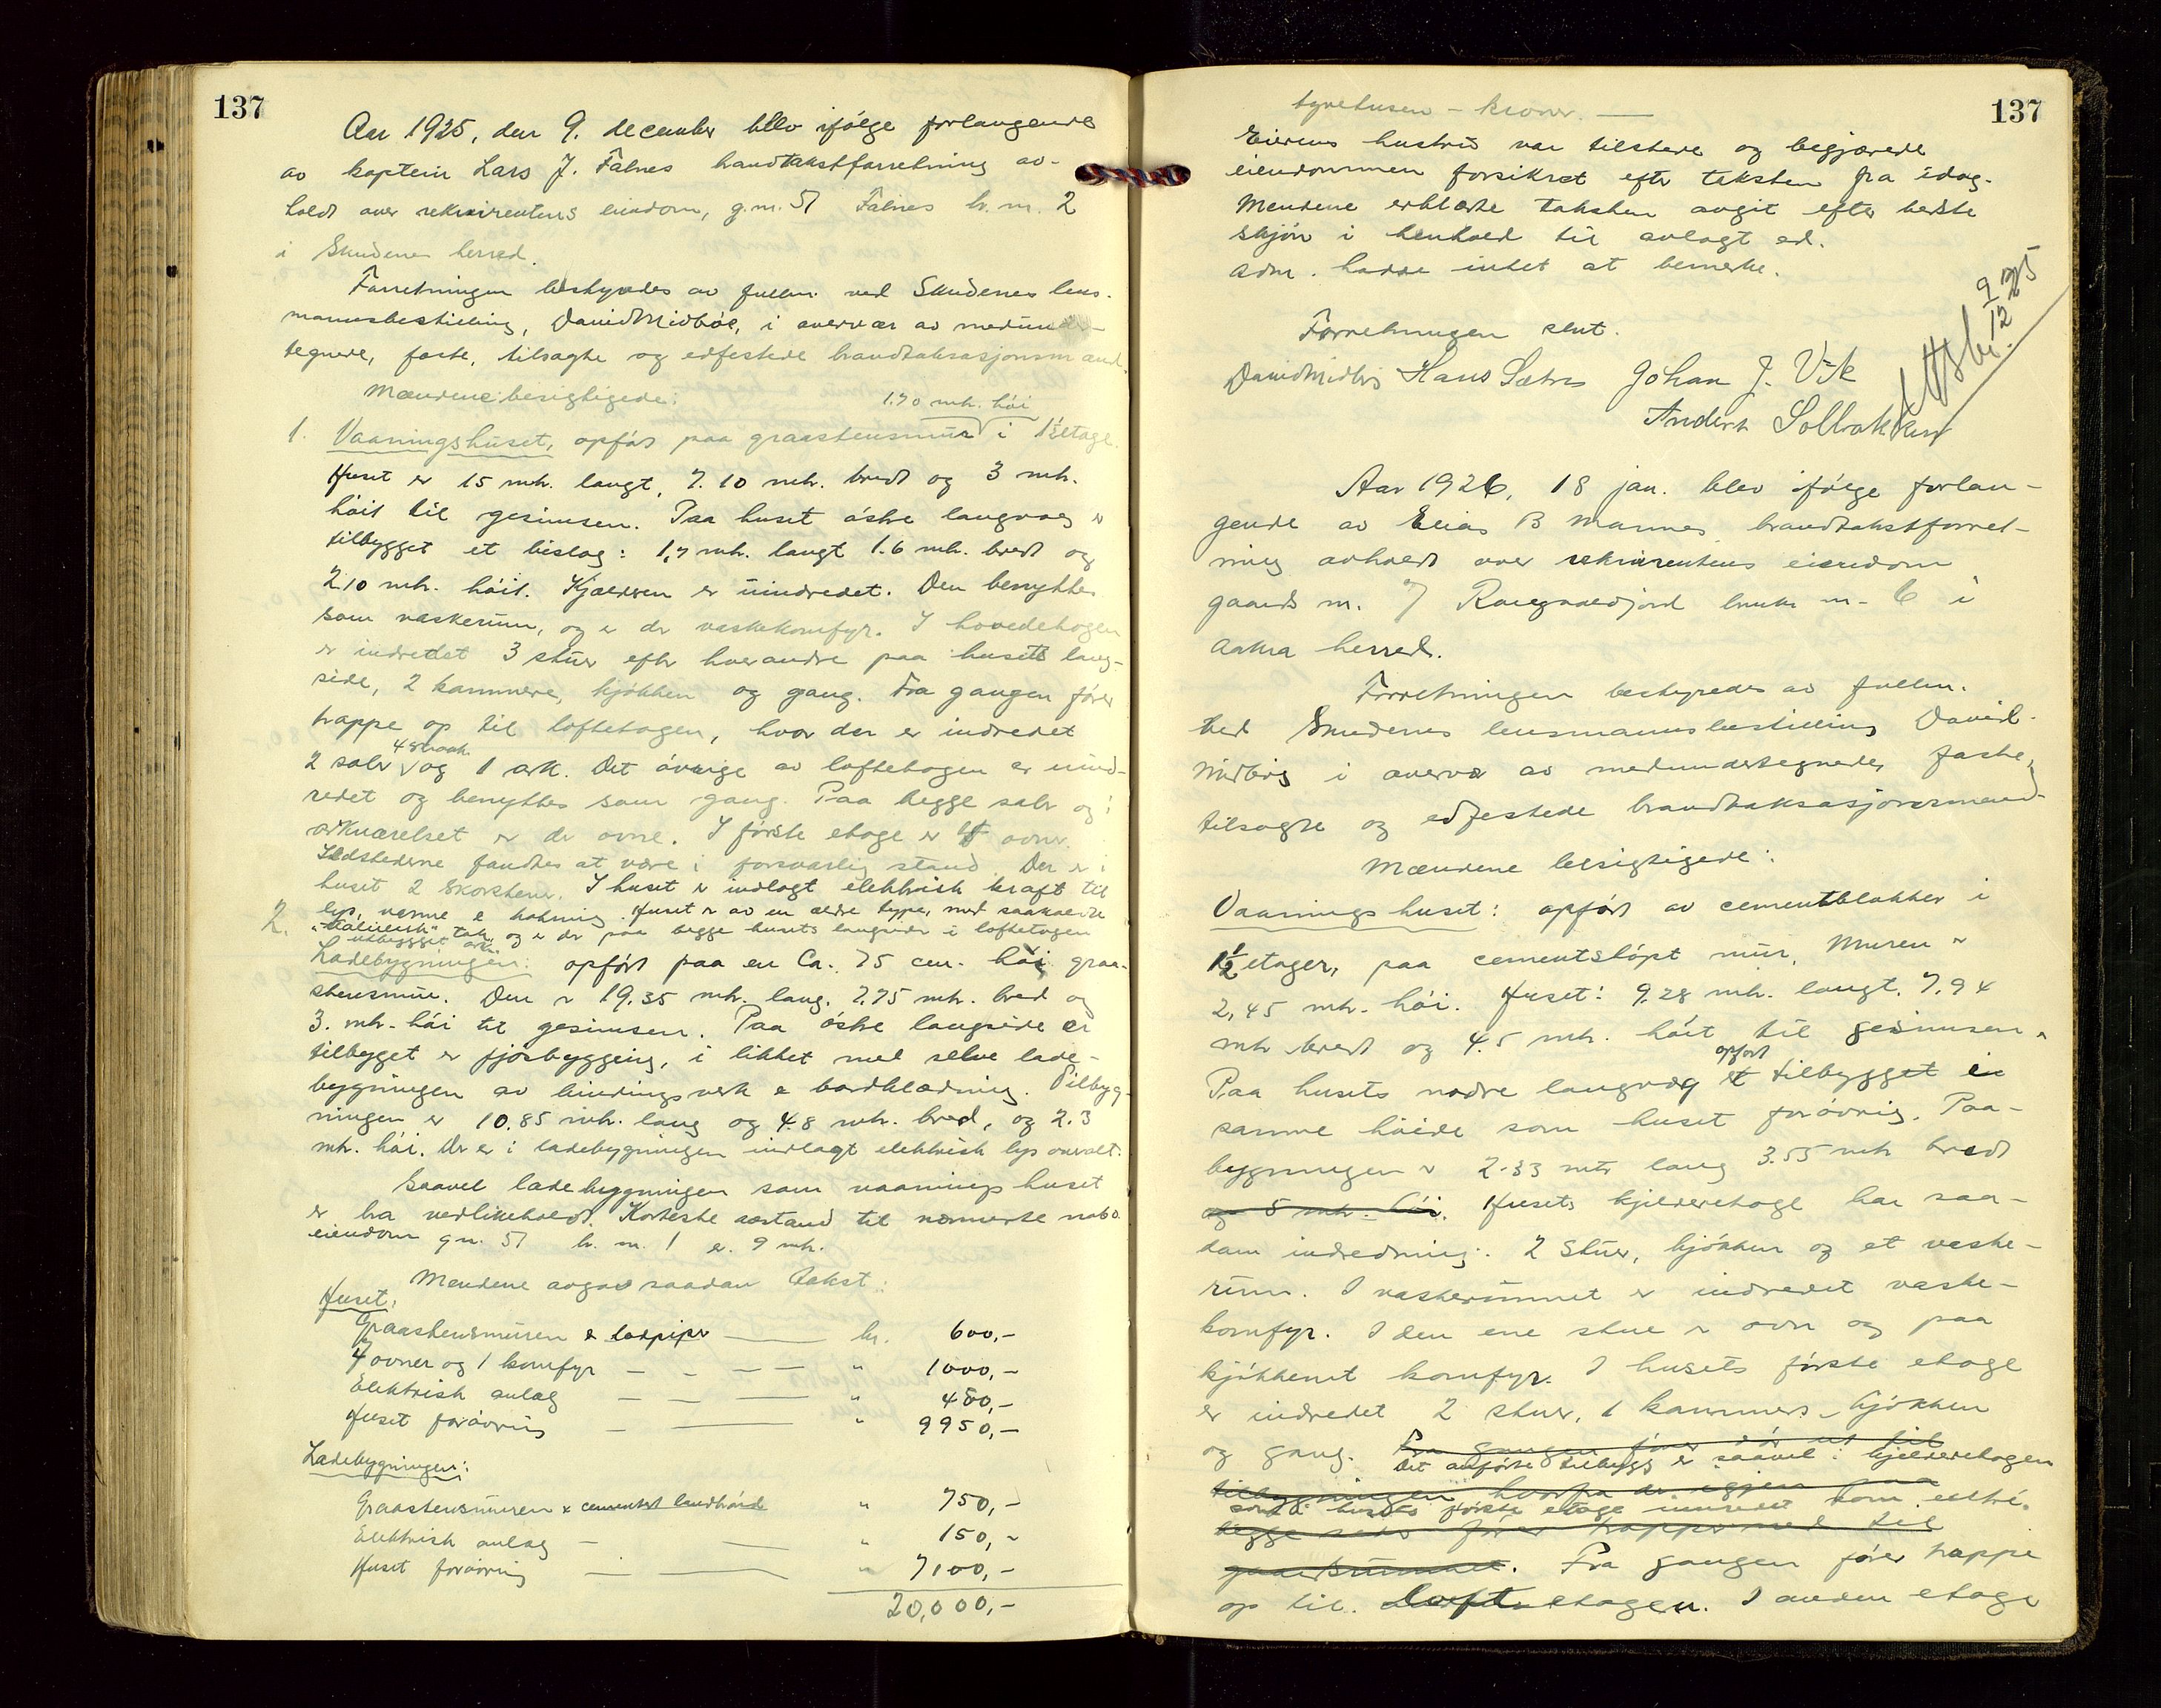 137
Aar 1925, den 9. december blev ifølge forlangende
av kaptein Lars J. Falnes brandtakstforretning av-
holdt over rekvirentens eiendom, g.nr. 51 Falnes br. nr. 2
i Skudenes herred.
Forretningen bestyredes av fullm. ved Skudenes lens-
mannsbestilling, David Midbøe, i overvær av medunder-
tegnede, faste, tilsagte og edfestede brandtaksasjonsmænd.
Mændene besigtigede:
1.70 mtr. høi
1. Vaaningshuset, opført paa graastensmur i 1½ etage.
Huset er 15 mtr. langt, 7.10 mtr. bredt og 3 mtr.
høit til gesimsen. Paa huset østre langvæg er
tilbygget et bislag: 1,7 mtr. langt 1.6 mtr. bredt og
2.10 mtr. høit. Kjælderen er uindredet. Den benyttes
som vaskerum, og er der vaskekomfyr. I hovedetagen
er indredet 3 stuer efter hverandre paa husets lang-
side, 2 kammere, kjøkken og gang. Fra gangen fører
trappe op til loftetagen, hvor der er indredet
2 saler og 1 ark. Det øvrige av loftetagen er uind-
redet og benyttes som gang. Paa begge saler og i
arkværelset er der ovne. I første etage er 4 ovner.
Ildstederne fandtes at være i forsvarlig stand. Der er i
huset 2 skorstene. I huset er indlagt elektrisk kraft til
lys, varme & kokning. Huset er av en ældre type, med saakaldte
"Italiensk" tak, og er der paa begge husets langsider i loftetagen
utbygget ark.
2. Ladebygningen: opført paa en Ca. 75 cm. høi graa-
stensmur. Den er 19,35 mtr. lang, 7.75 mtr. bred og
3. mtr. høi til gesimsen. Paa østre langside er
tilbygget en fjøsbygging, i likhet med selve lade-
bygningen av bindingsverk & bordklædning. Tilbyg-
ningen er 10.85 mtr. lang og 4.8 mtr. bred, og 2.3
mtr. høi. Der er i ladebygningen indlagt elektrisk lys overalt.
Saavel ladebygningen som vaaningshuset
er bra vedlikeholdt. Korteste avstand til nærmeste nabo
eiendom g.nr. 51 br. nr. 1 er 9 mtr.
Mændene avgav saadan takst:
Huset:
Graastensmuren & ladpiper kr. 600,-
7 ovner og 1 komfyr " 1000,-
Elektrisk anlæg " 450,-
Huset forøvrig " 9950,-
Ladebygningen:
Graastensmuren & cementert landkum " 750,-
Elektrisk anlæg " 150,-
Huset forøvrig " 7100,-
20,000,-
137
tyvetusen - kroner.
Eierens hustru var tilstede og begjærede
eiendommen forsikret efter taksten fra idag.
Mændene erklærte taksten avgit efter bedste
skjøn i henhold til avlagt ed.
Adm. hadde intet at bemerke.
Forretningen slut.
9/12 25
David Midbøe Hans Sætre Johan J. Vik
Anders Solbakken
Aar 1926, 18 jan. blev ifølge forlan-
gende av Elias B Mannes brandtakstforret-
ning avholdt over rekvirentens eiendom
gaards nr. 7 Rangvaldjord bruks nr. 6 i
Aakra herred.
Forretningen bestyredes av fullm.
ved Skudenes lensmannsbestilling David
Midbøe i overvær av medundertegnede, faste,
tilsagte og edfestede brandtaksasjonsmænd.
Mændene besigtigede:
Vaaningshuset: opført av cementblokker i
1½ etager, paa cementstøpt mur. Muren er
2,45 mtr. høi. Huset: 9.28 mtr. langt, 7.94
mtr bredt og 4.5 mtr. høit til gesimsen.
Paa husets nordre langvæg er opført tilbygget en
samme høide som huset forøvrig. Paa-
bygningen er 2.33 mtr lang 3.55 mtr bredt
og 5 mtr. høi. Husets kjelderetage har saa-
dam indredning: 2 stuer, kjøkken og et vaske-
rum. I vaskerummet er indredet vaske-
komfyr. I den ene stue er ovn og paa
kjøkkenet komfyr. I husets første etage
er indredet 2 stuer, 1 kammers, kjøkken
og gang. Fra gangen fører dør ut til
Det anførte tilbygg er saavel i kjelderetagen
tilbygningen hvorfra der igjen paa
som i husets første etage innredet som entré.
begge sider fører trapper ned til
Fra gangen fører trappe
op til Loft etagen. I anden etage